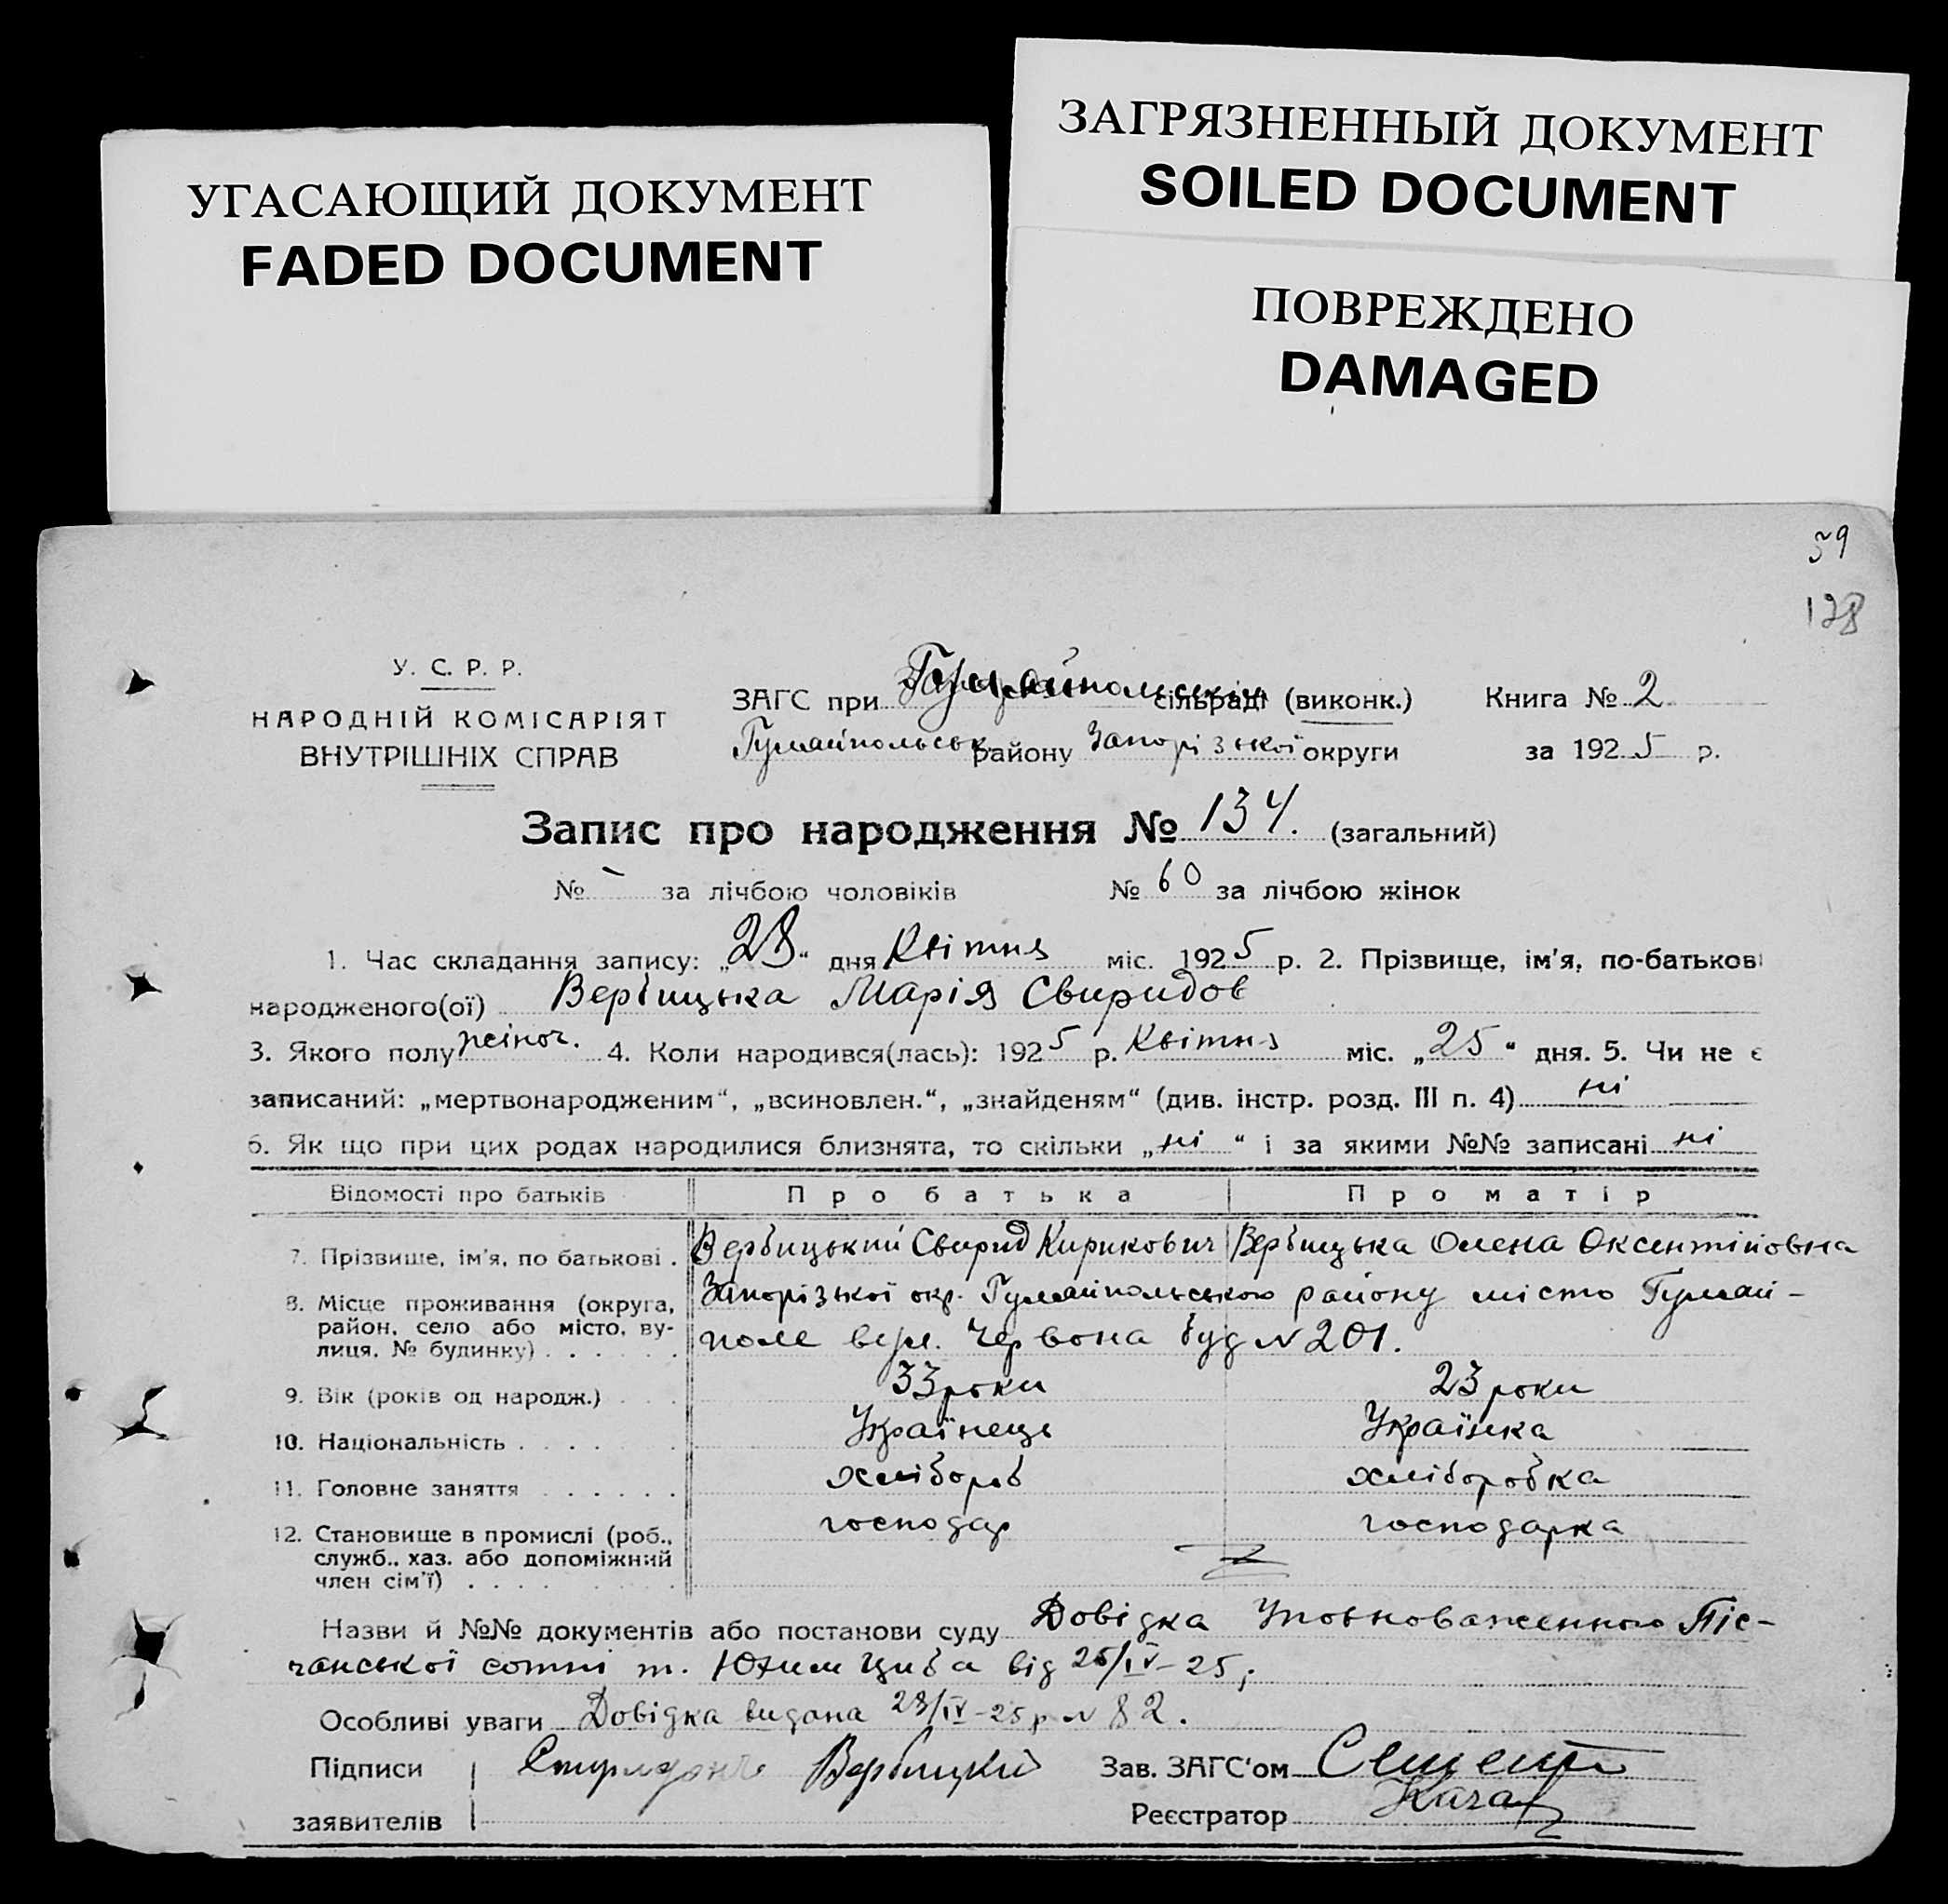 ЗАГРЯЗНЕННЫЙ ДОКУМЕНТ
SOILED DOCUMENT
УГАСАЮЩИЙ ДОКУМЕНТ
FADED DOCUMENT
ПОВРЕЖДЕНО
DAMAGED
59
128
У. С. Р. Р.
НАРОДНІЙ КОМІСАРІЯТ
ВНУТРІШНІХ СПРАВ
ЗАГС при сільраді (виконк.) Книга № 2
Гуляйпольськ. району Запорізької округи за 1925 р.
Запис про народження № 134. (загальний)
№ - за лічбою чоловіків № 60 за лічбою жінок
1. Час складання запису: „28“ дня Квітня міс. 1925 р. 2. Прізвище, ім'я, по-батькові
народженого(ої) Вербицька Марія Свиридов
3. Якого полу жіноч. 4. Коли народився(лась): 1925 р. Квітня міс. „25“ дня. 5. Чи не є
записаний: „мертвонародженим“, „всиновлен.“, „знайденям“ (див. інстр. розд. III п. 4) ні
6. Як що при цих родах народилися близнята, то скільки „ні“ і за якими №№ записані ні
Відомості про батьків Про батька Про матір
7. Прізвище, ім'я, по батькові . Вербицький Свирид Кирикович Вербицька Олена Оксентійовна
8. Місце проживання (округа, район, село або місто, вулиця, № будинку) . . . . . . Запорізької окр. Гуляйпольського району місто Гуляй-
поле вул. Червона буд N 201.
9. Вік (років од народж.) . . . 33 роки 23 роки
10. Національність . . . . . . Українець Українка
11. Головне заняття . . . . . . хлібороб хліборобка
12. Становище в промислі (роб., служб., хаз. або допоміжний член сім'ї) . . . . господар господарка
Назви й №№ документів або постанови суду Довідка Уповноваженного Піс-
чанської сотні т. Юхим Циба від 25/IV-25;
Особливі уваги Довідка видана 28/IV-25 р N 82.
Підписи Вербицкий Зав. ЗАГС'ом
заявителів Реєстратор